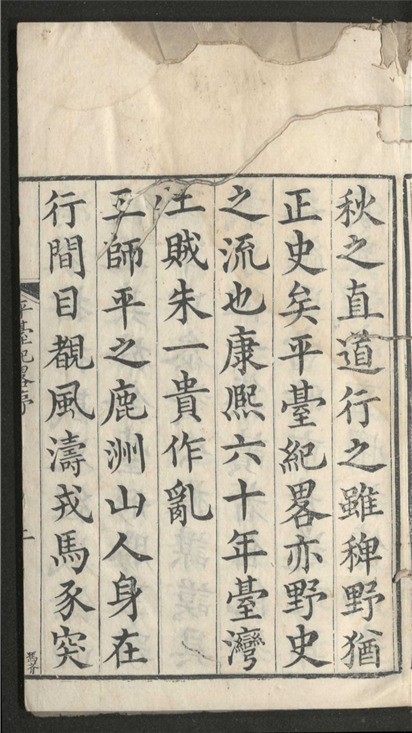 秋之直道行之雖稗野猶
正史矣平臺紀畧亦野史
之流也康熙六十年臺灣
土賊朱一貴作亂
王師平之鹿洲山人身在
行間目覩風濤戎馬豕突
平臺紀畧序
二